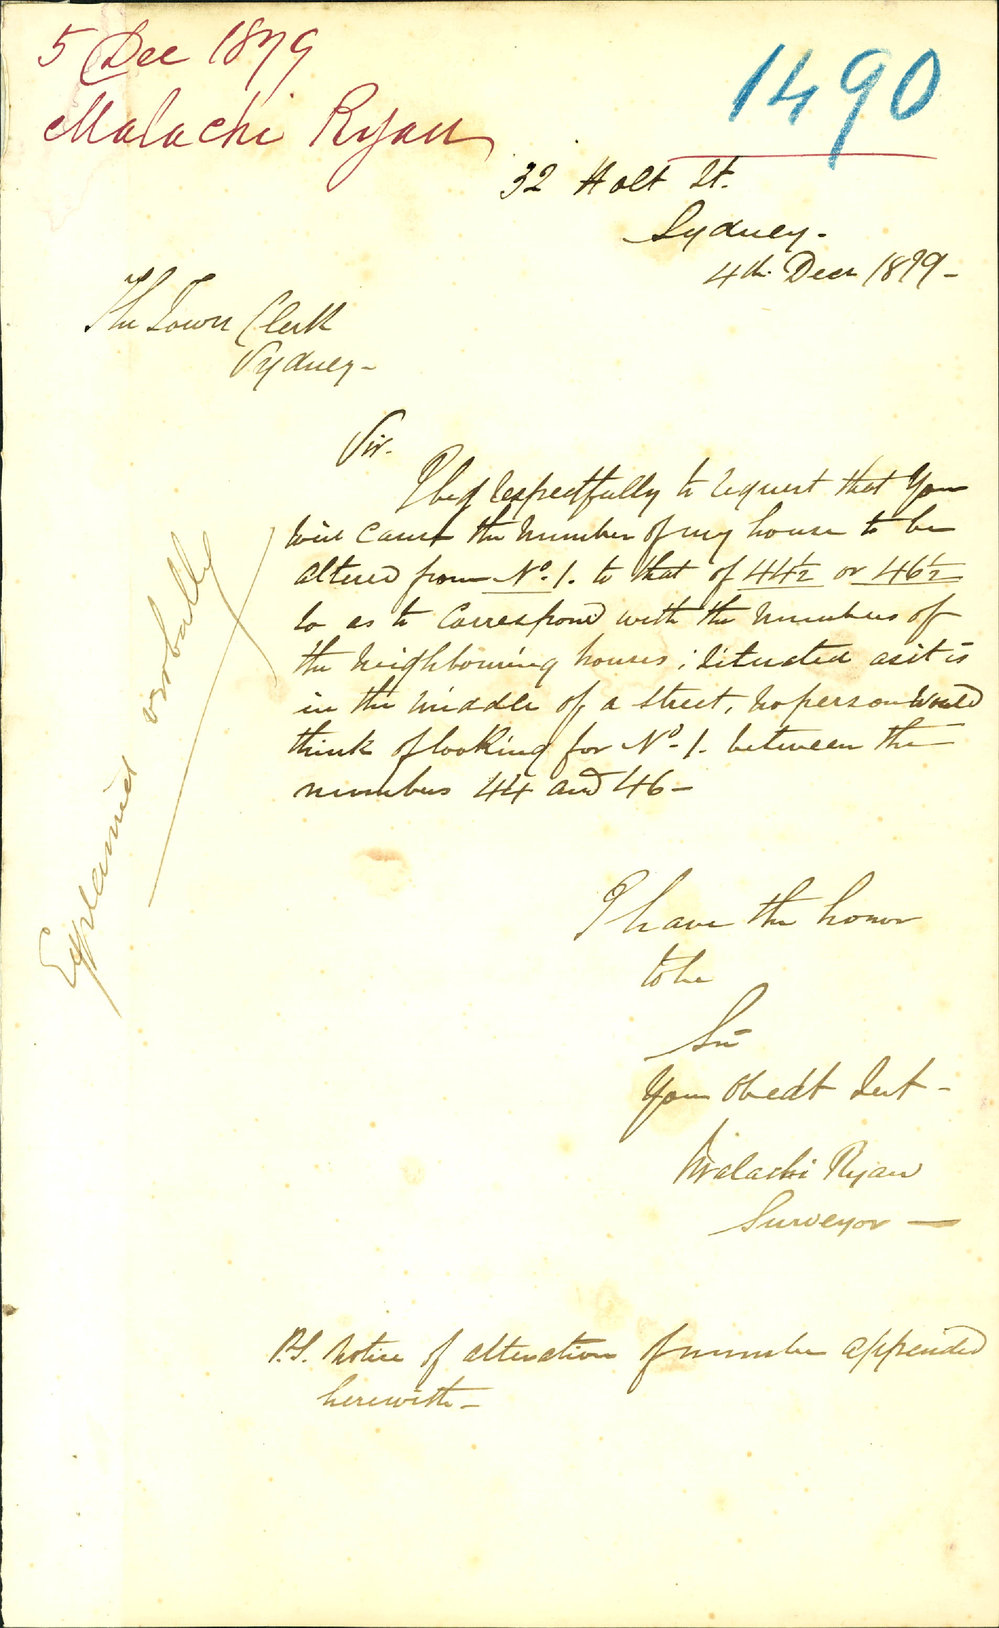 5 Dec 1879
Malachi Ryan
1490
32 Holt St.
Sydney.
4th. Decr 1879
The Town Clerk
Sydney
Sir.
I beg respectfully to request that you
will cause the number of my house to be
altered from No. 1. to that of 44½ or 46½
so as to correspond with the numbers of
the neighbouring houses; situated as it is
in the middle of a street, no person would
think of looking for No. 1. between the
numbers 44 and 46
Explained verbally
I have the honor
to be
Sir
Your Obedt Sert
Malachi Ryan
Surveyor
P.S. Notice of alteration of number appended
herewith